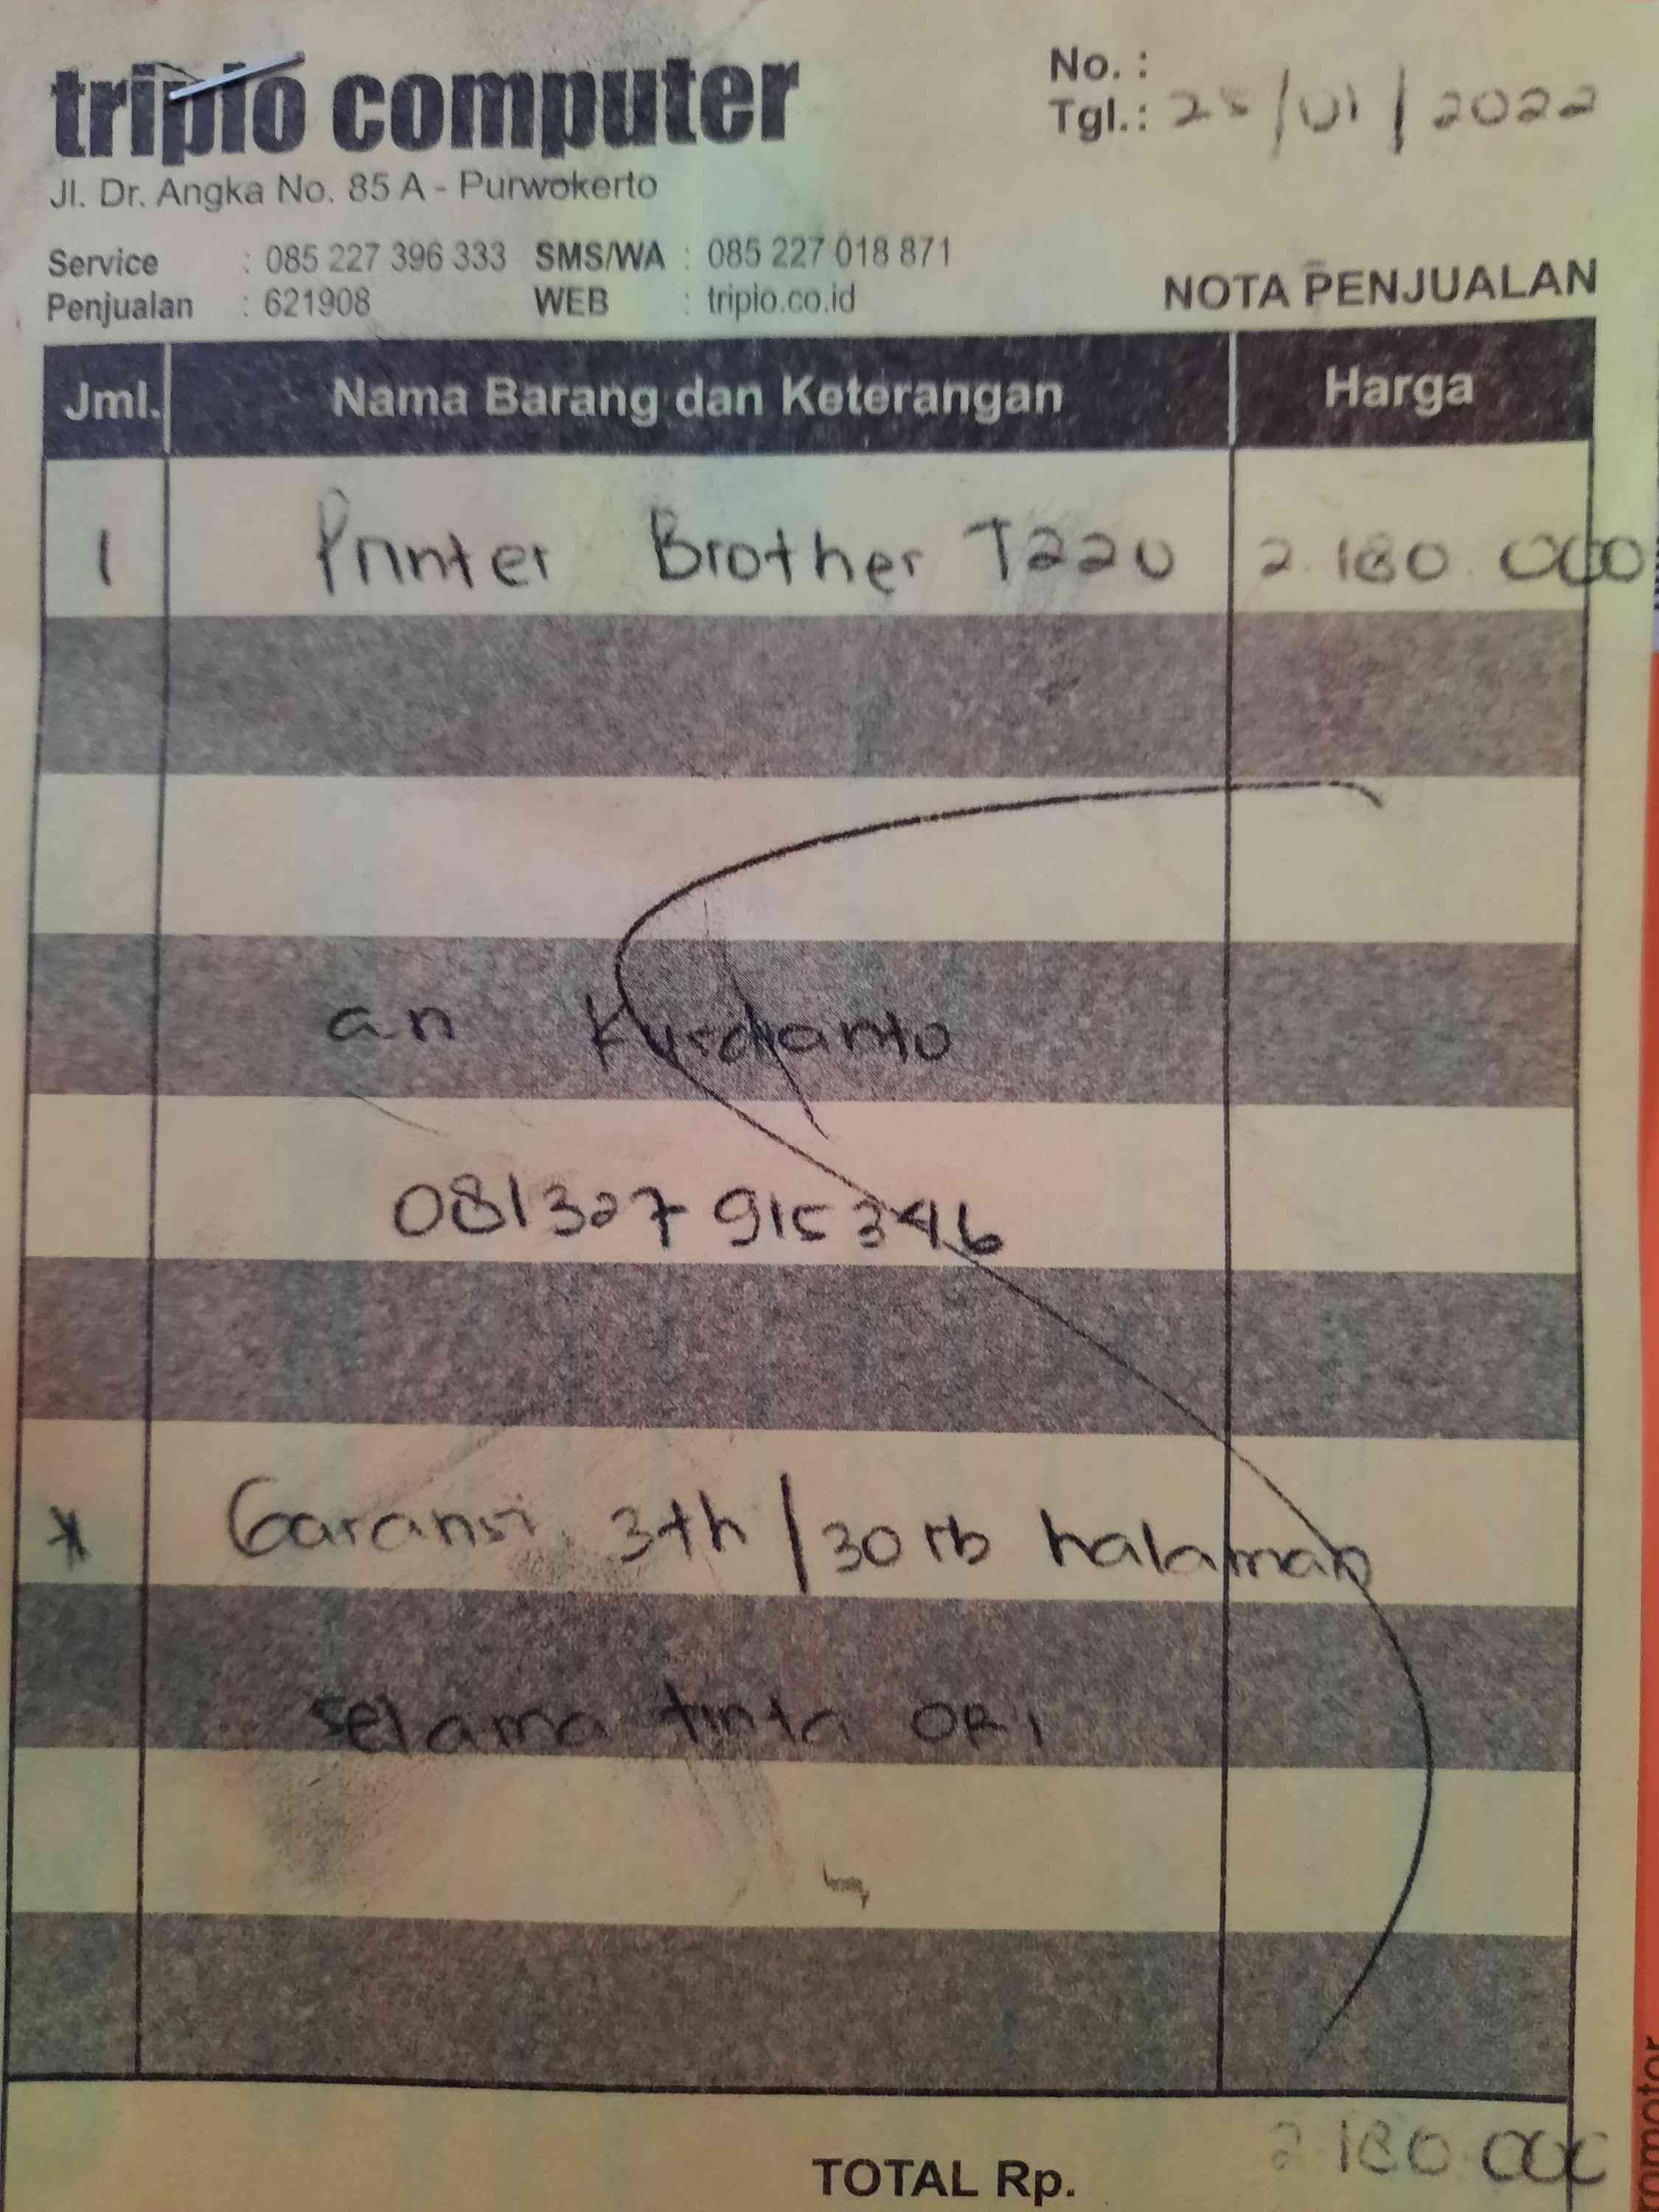 tripio computer
Jl. Dr. Angka No. 85 A - Purwokerto
No. :
Tgl.: 25/01/2022
Service : 085 227 396 333 SMS/WA : 085 227 018 871
Penjualan : 621908 WEB : tripio.co.id
NOTA PENJUALAN
Jml. Nama Barang dan Keterangan Harga
1 Printer Brother T220 2.180.000
an Kusdianto
081327 915346
* Garansi 3th / 30 rb halaman
selama tinta ORI
TOTAL Rp. 2.180.000